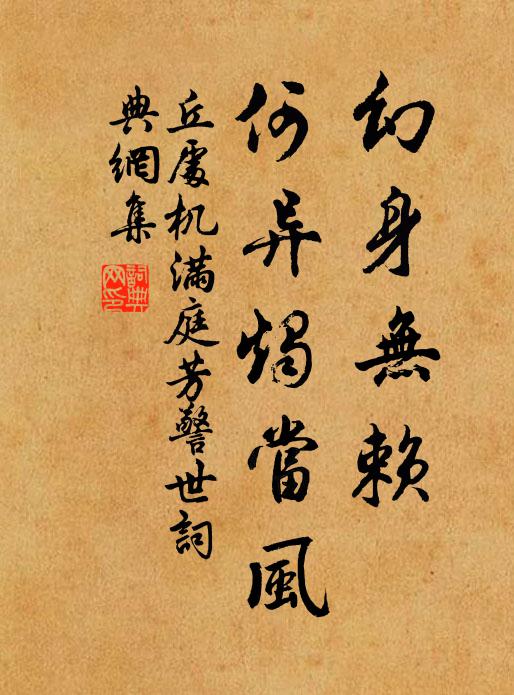 幻身無賴
何异燭當風
丘處机滿庭芳警世詞
典網集
詞典網印